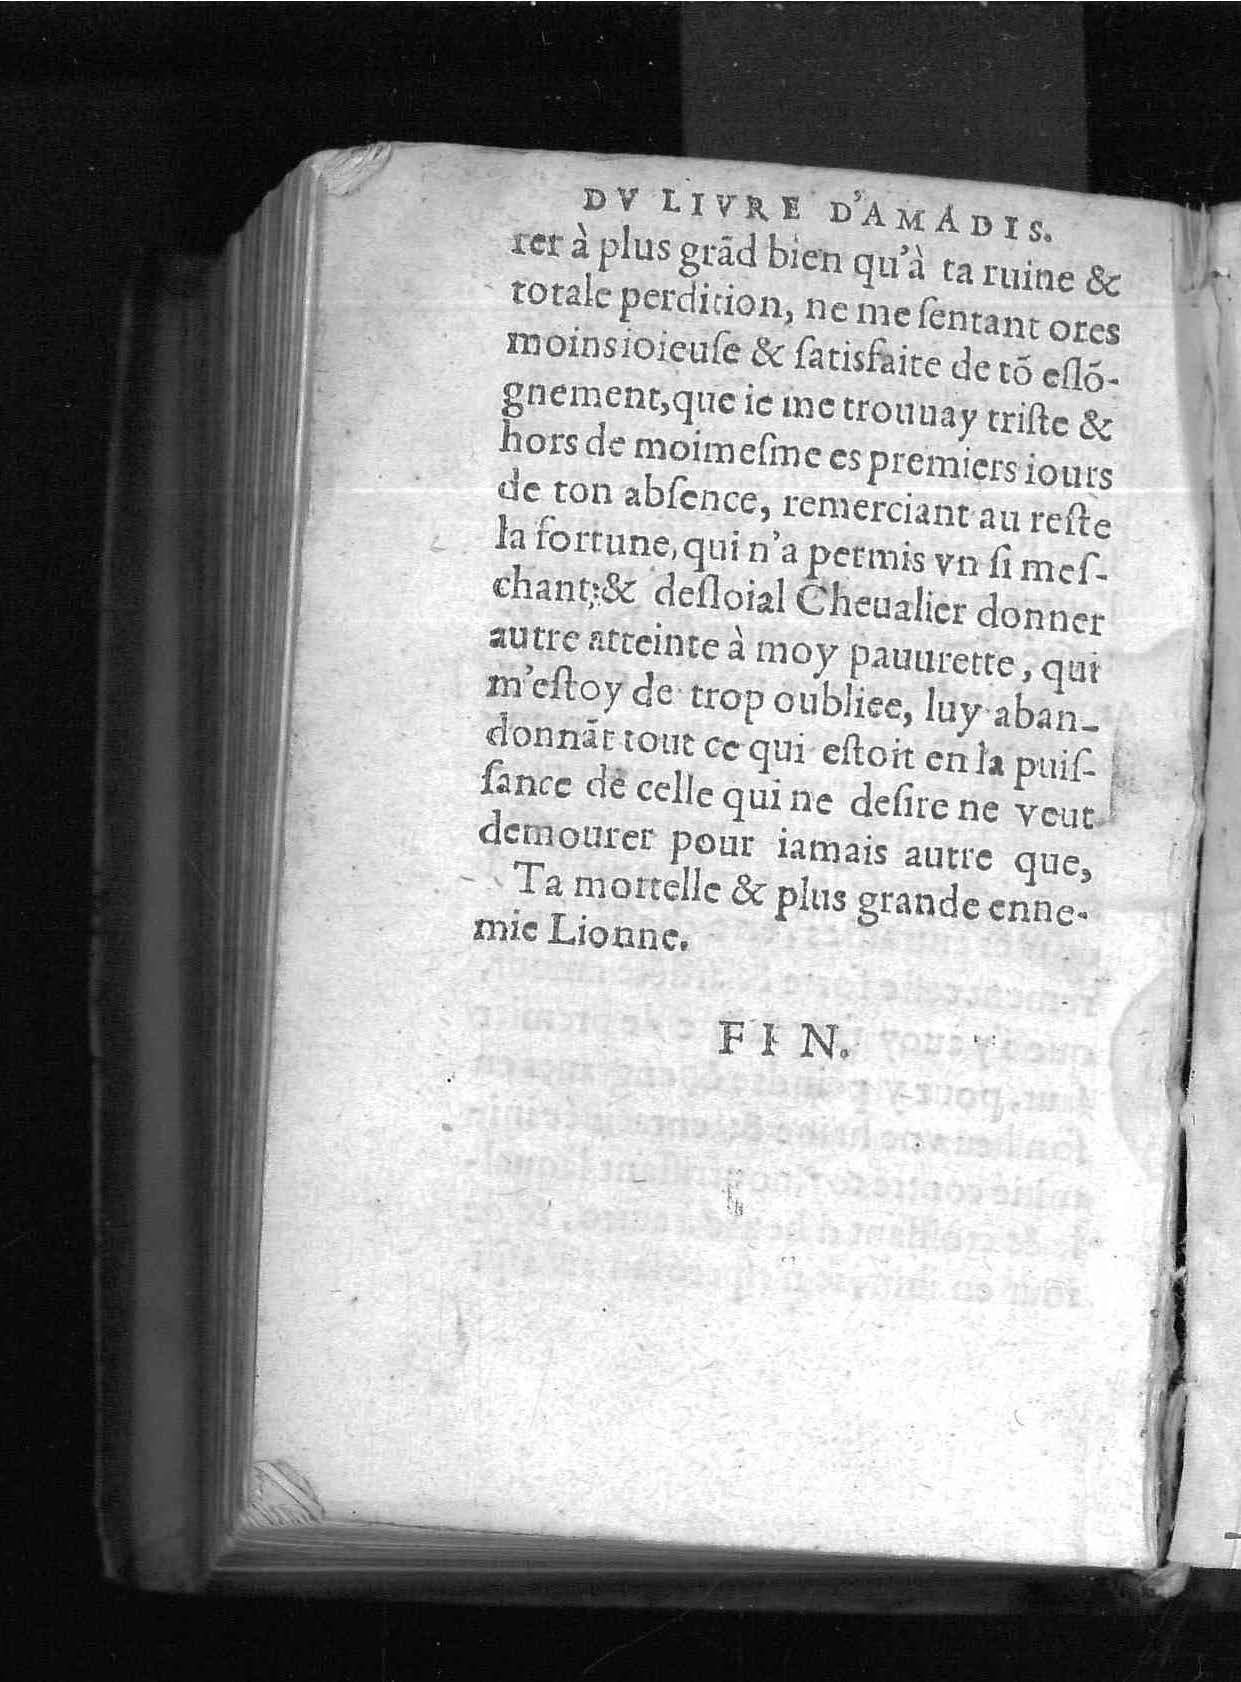 DV LIVRE D'AMADIS.
rer à plus grãd bien qu'à ta ruine &
totale perdition, ne me ſentant ores
moins ioieuſe & ſatisfaite de tõ eſlõ-
gnement, que ie me trouuay triſte &
hors de moimeſme es premiers iours
de ton abſence, remerciant au reſte
la fortune, qui n'a permis vn ſi meſ-
chant; & deſloial Cheualier donner
autre atteinte à moy pauurette, qui
m'eſtoy de trop oubliee, luy aban-
donnãt tout ce qui eſtoit en la puiſ-
ſance de celle qui ne deſire ne veut
demourer pour iamais autre que,
Ta mortelle & plus grande enne-
mie Lionne.
FIN.